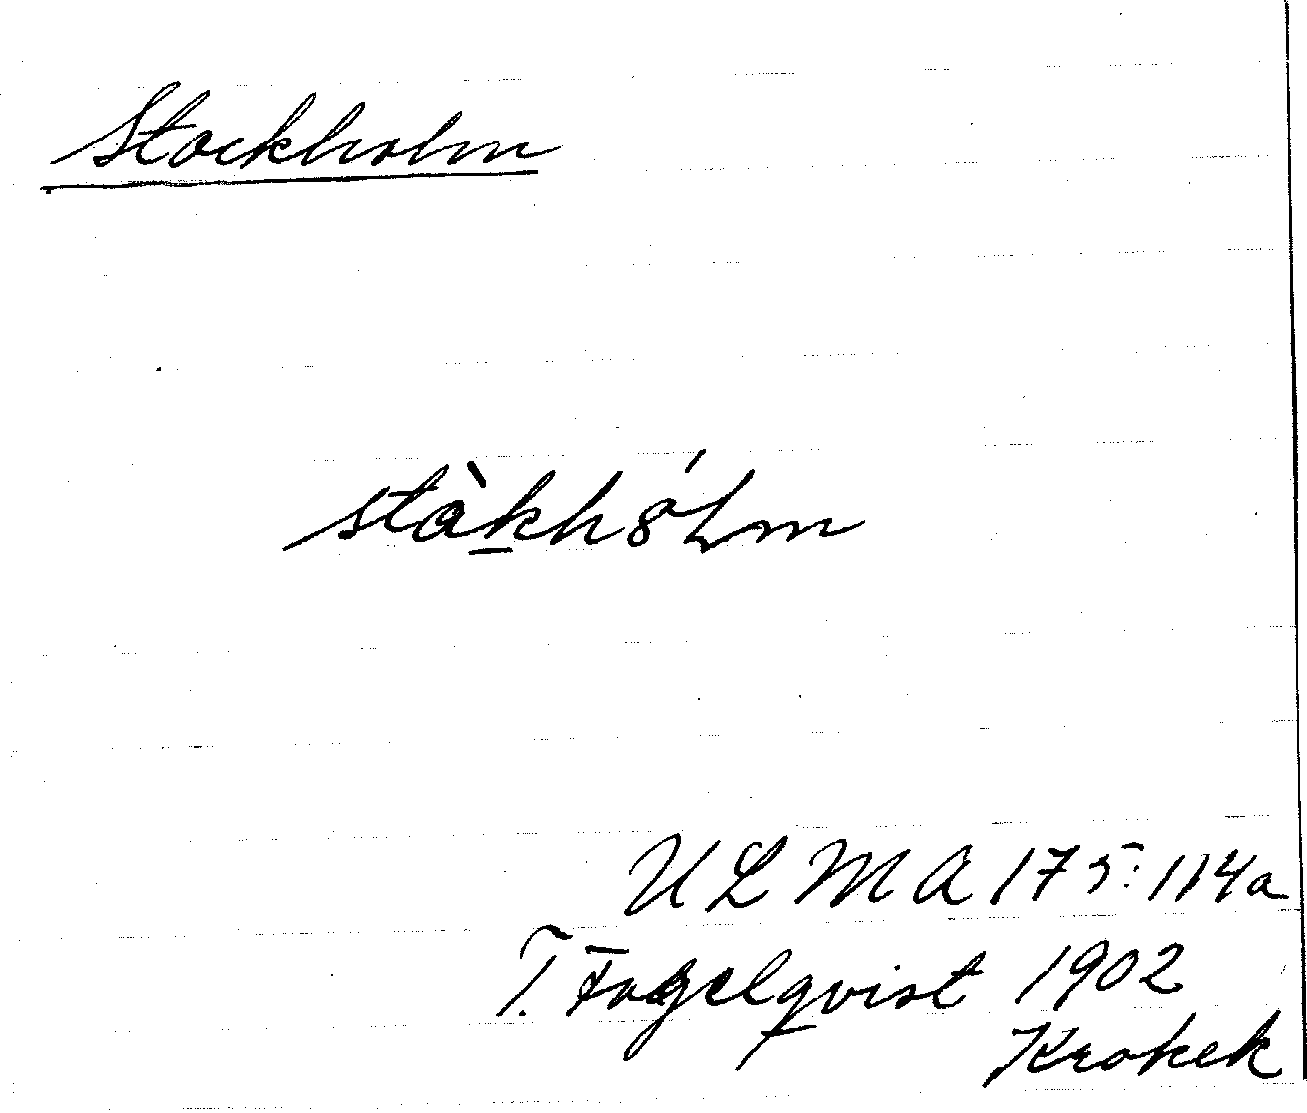 Stockholm
stàkh8́lm
ULMA 175:114a
T. Fogelqvist 1902
Krokek